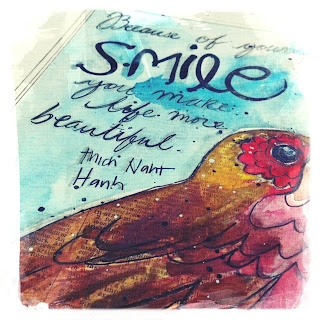 Because of your
SMile
you make
life more
beautiful.
thich Naht
Hanh